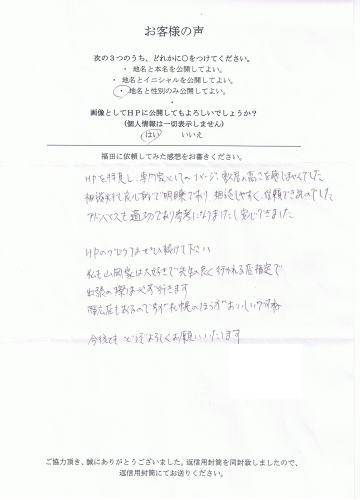 お客様の声
次の3つのうち、どれかに○をつけてください。
・ 地名と本名を公開してよい。
・ 地名とイニシャルを公開してよい。
・ 地名と性別のみ公開してよい。
画像としてHPに公開してもよろしいでしょうか?
(個人情報は一切表示しません)
はい　いいえ
福田に依頼してみた感想をお書きください。
HPを拝見し、専門家としてのイメージ・敷居の高さを感じませんでした
相談料も良心的で明瞭であり 相談しやすく、信頼できるものでした
アドバイスも適切であり参考になりましたし安心できました
HPのブログはぜひ続けて下さい
私も山岡家は大好きで
出張の際は必ず行きます
札幌のほうがおいしいですね
今後とも どうぞよろしくお願いいたします
ご協力頂き、誠にありがとうございました。返信用封筒を同封致しましたので、
返信用封筒にてお送りください。